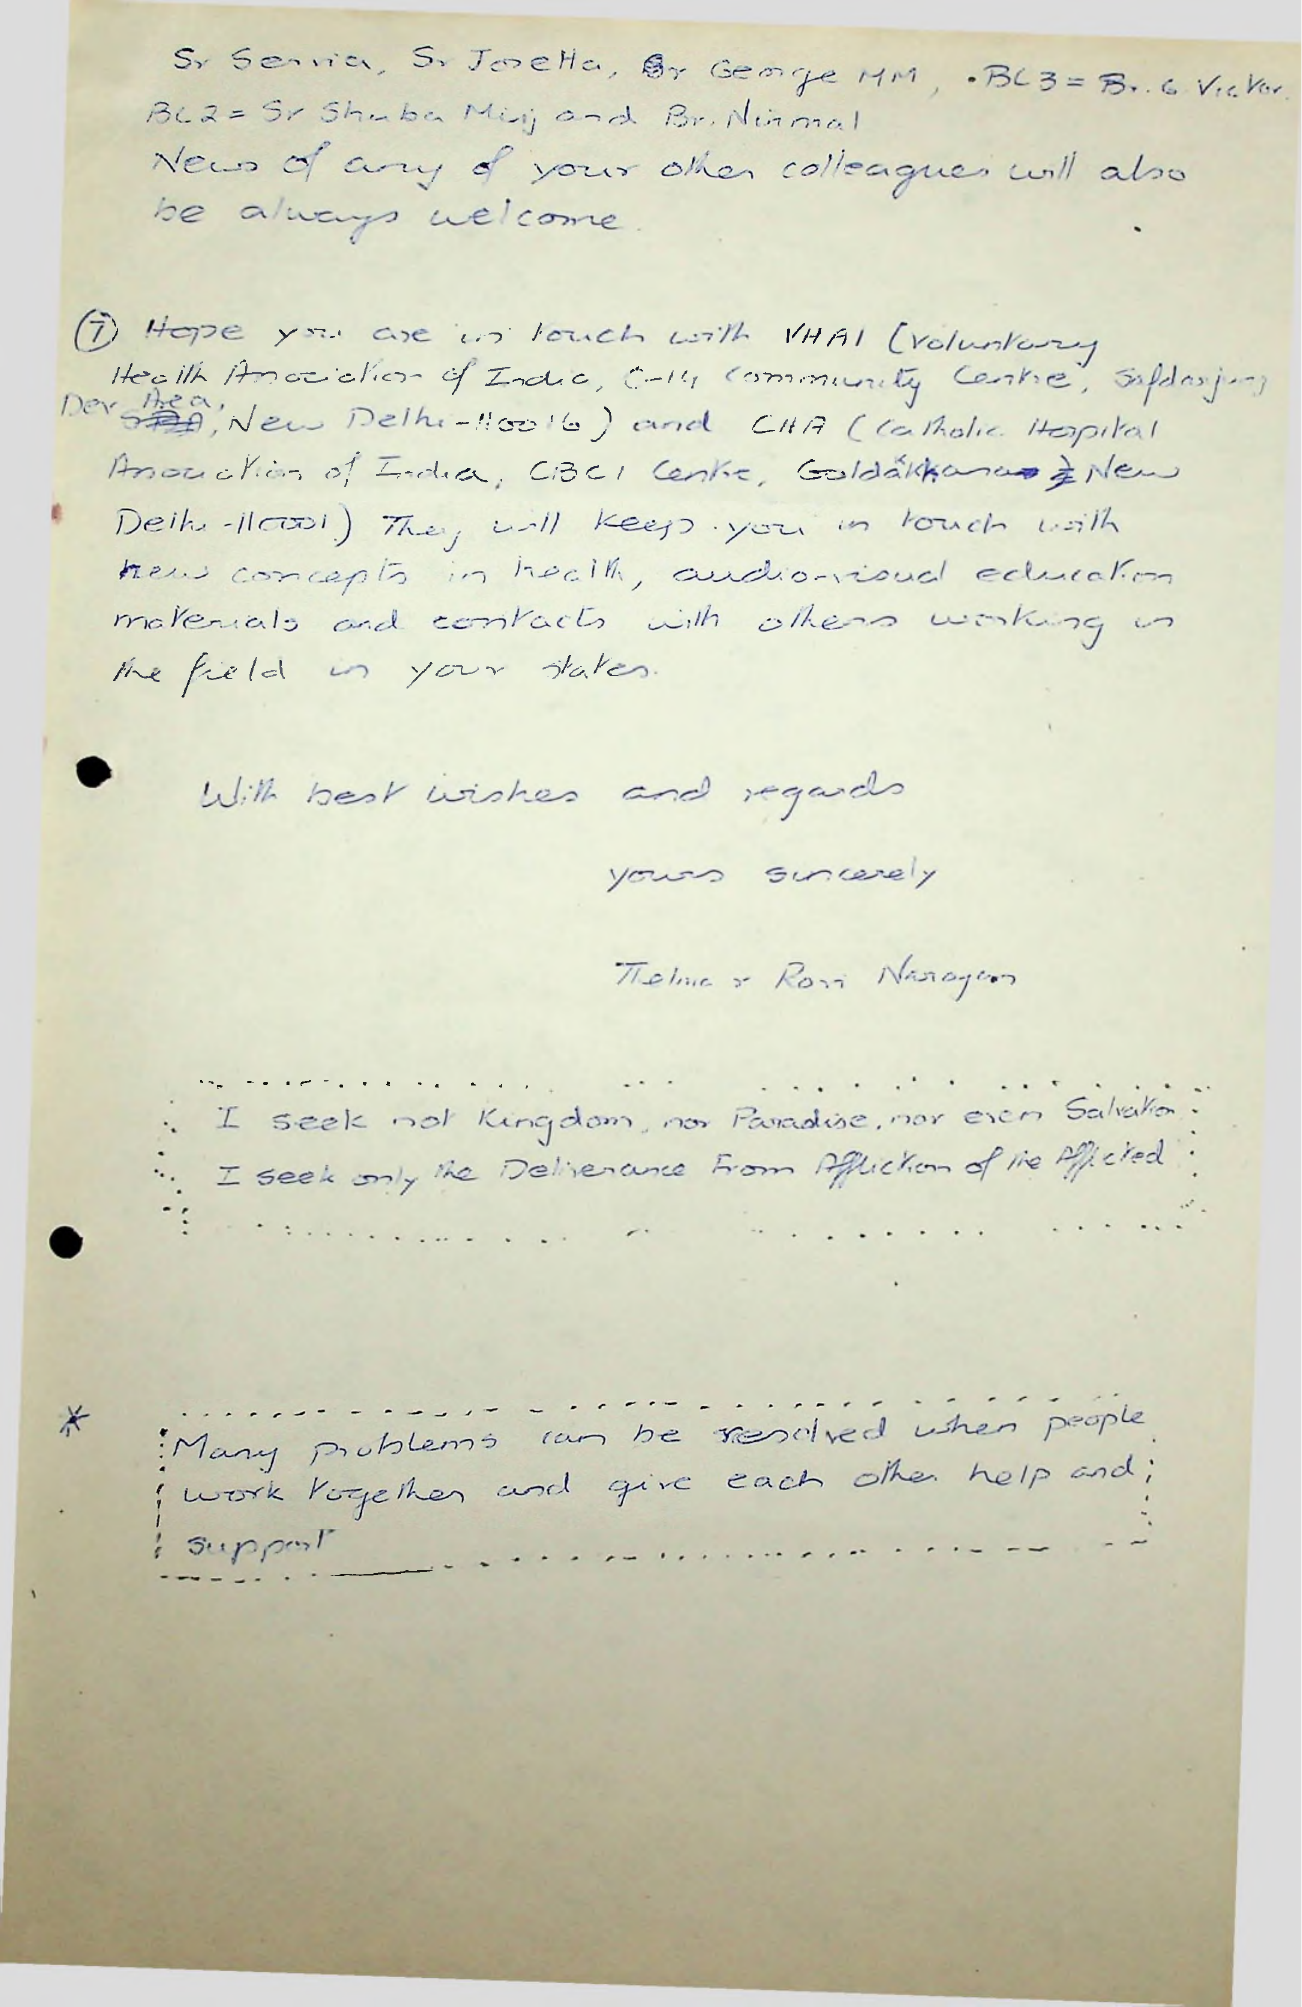 Sr Servia, Sr Josetta, Br George MM, . BC3 = Br. G. Victor.
BC2 = Sr Shuba Minj and Br. Nirmal
News of any of your other colleagues will also
be always welcome.
⑦ Hope you are in touch with VHAI (Voluntary
Health Association of India, C-14 Community Centre, Safdarjung
Dev Area, New Delhi-110016) and CHA (Catholic Hospital
Association of India, CBCI Centre, Goldakkhana, New
Delhi-110001.) They will keep you in touch with
new concepts in health, audio-visual education
materials and contacts with others working in
the field in your states.
With best wishes and regards
yours sincerely
Thelma & Ravi Narayan
I seek not Kingdom, nor Paradise, nor even Salvation
I seek only the Deliverance From Affliction of the Afflicted
*
Many problems can be resolved when people
work together and give each other help and
support